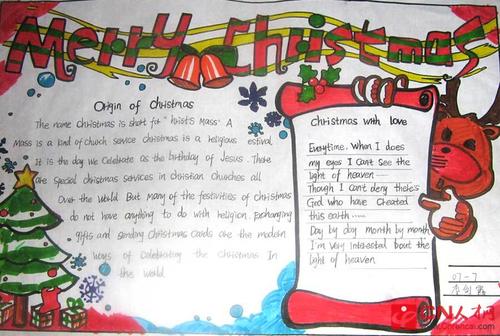 Merry Christmas
Origin of christmas
The name christmas is short for "hrist's Mass" A
Mass is a kind of church service christmas is a religious estival
It is the day we Celebrate as the birthday of Jesus. There
are special christmas services in christian Churches all
Over the World But many of the festivities of christmas
do not have anything to do with religion. Exchanging
gifts and sending Christmas cards are the modern
Ways of celebrating the Christmas In
the world
christmas with love
Everytime. When I does
my eyes I Can't see the
light of heaven
Though I can't deny there's
God who have Created
this earth......
Day by day month by month
I'm very intersted bout the
light of heaven
07-7